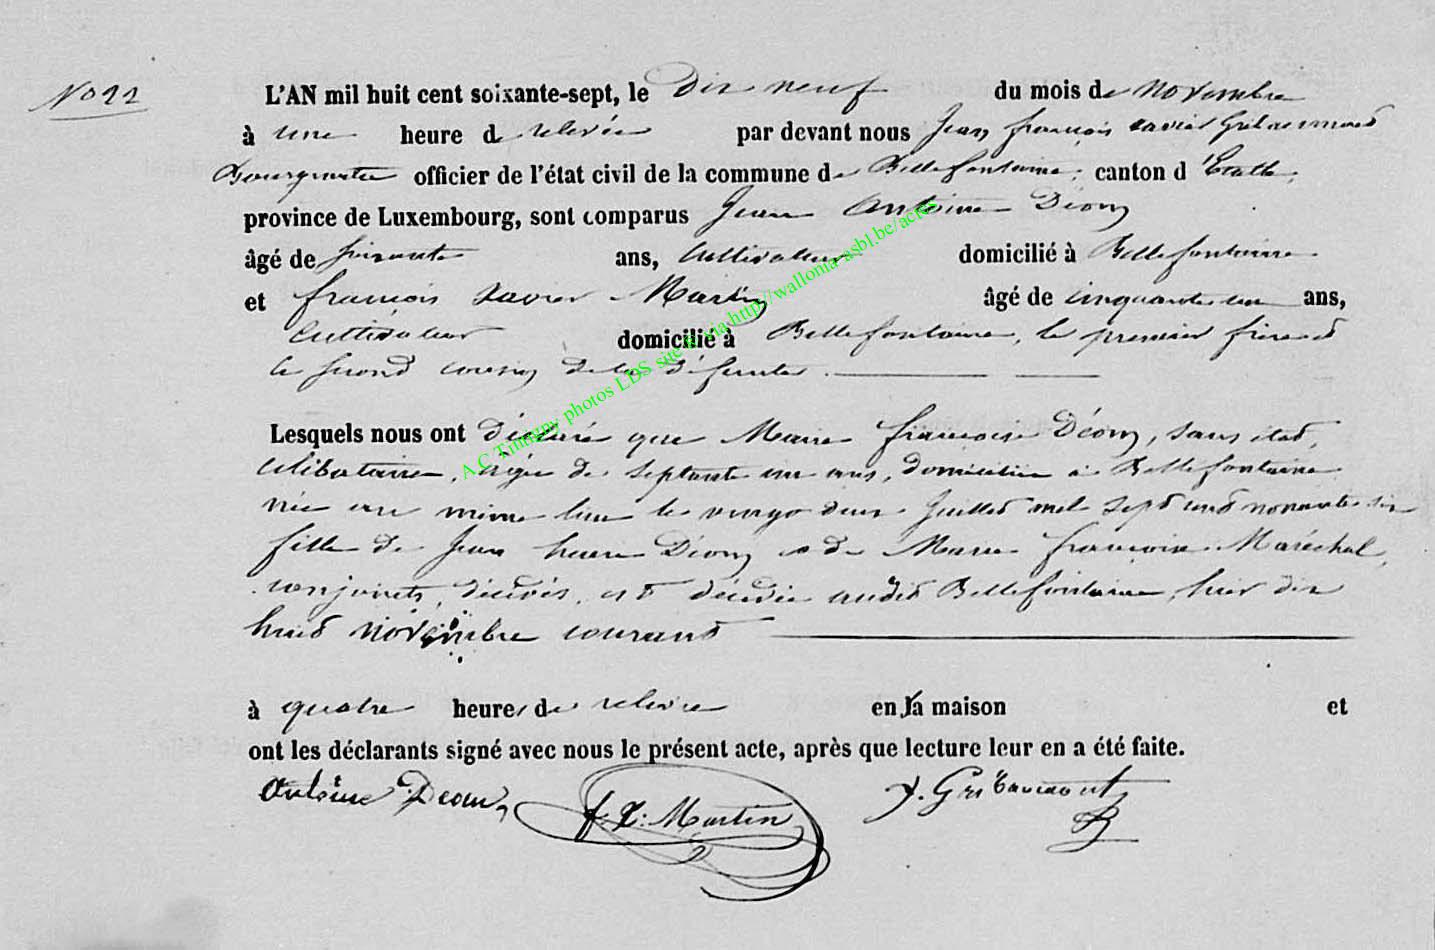 No 22
L'AN mil huit cent soixante-sept, le Dix neuf du mois de Novembre
à une heure de relevée par devant nous Jean françois xavier Gribaumont
Bourgmestre officier de l'état civil de la commune de Bellefontaine, canton d'Etalle,
province de Luxembourg, sont comparus Jean Antoine Déom
âgé de soixante ans, Cultivateur domicilié à Bellefontaine
et françois Xavier Martin âgé de cinquante un ans,
Cultivateur domicilié à Bellefontaine, le premier frère et
le second cousin de la défunte.
Lesquels nous ont déclaré que Marie françoise Déom, sans état,
célibataire, âgée de septante un ans, domiciliée à Bellefontaine
née au même lieu le vingt deux Juillet mil sept cent nonante six
fille de Jean henri Déom et de Marie françoise Maréchal,
conjoints, décédés, est décédée audit Bellefontaine, hier dix
huit novembre courant
à quatre heures de relevée en la maison et
ont les déclarants signé avec nous le présent acte, après que lecture leur en a été faite.
Antoine Deom f. X: Martin J. Gribaumont
A.C Tintigny photos LDS sur le via http://wallonia-asbl.be/actes